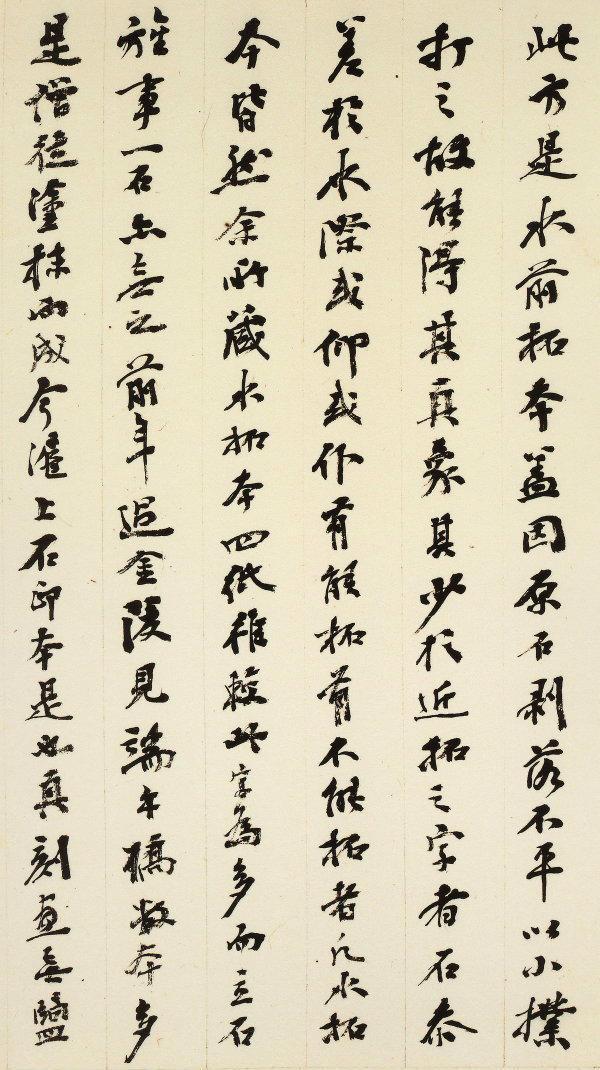 此方是水前拓本蓋因原石剥落不平以小撲
打之故能得其真象其少於近拓之字者石泰
差於水際或仰或仆有能拓有不能拓者凡水拓
本皆然余所藏水拓本四紙雖較此字為多而立石
旌事一石亦無之前年過金陵見端午橋數本多
是僧徒塗抹而成今滬上石印本是也真刻直無鹽